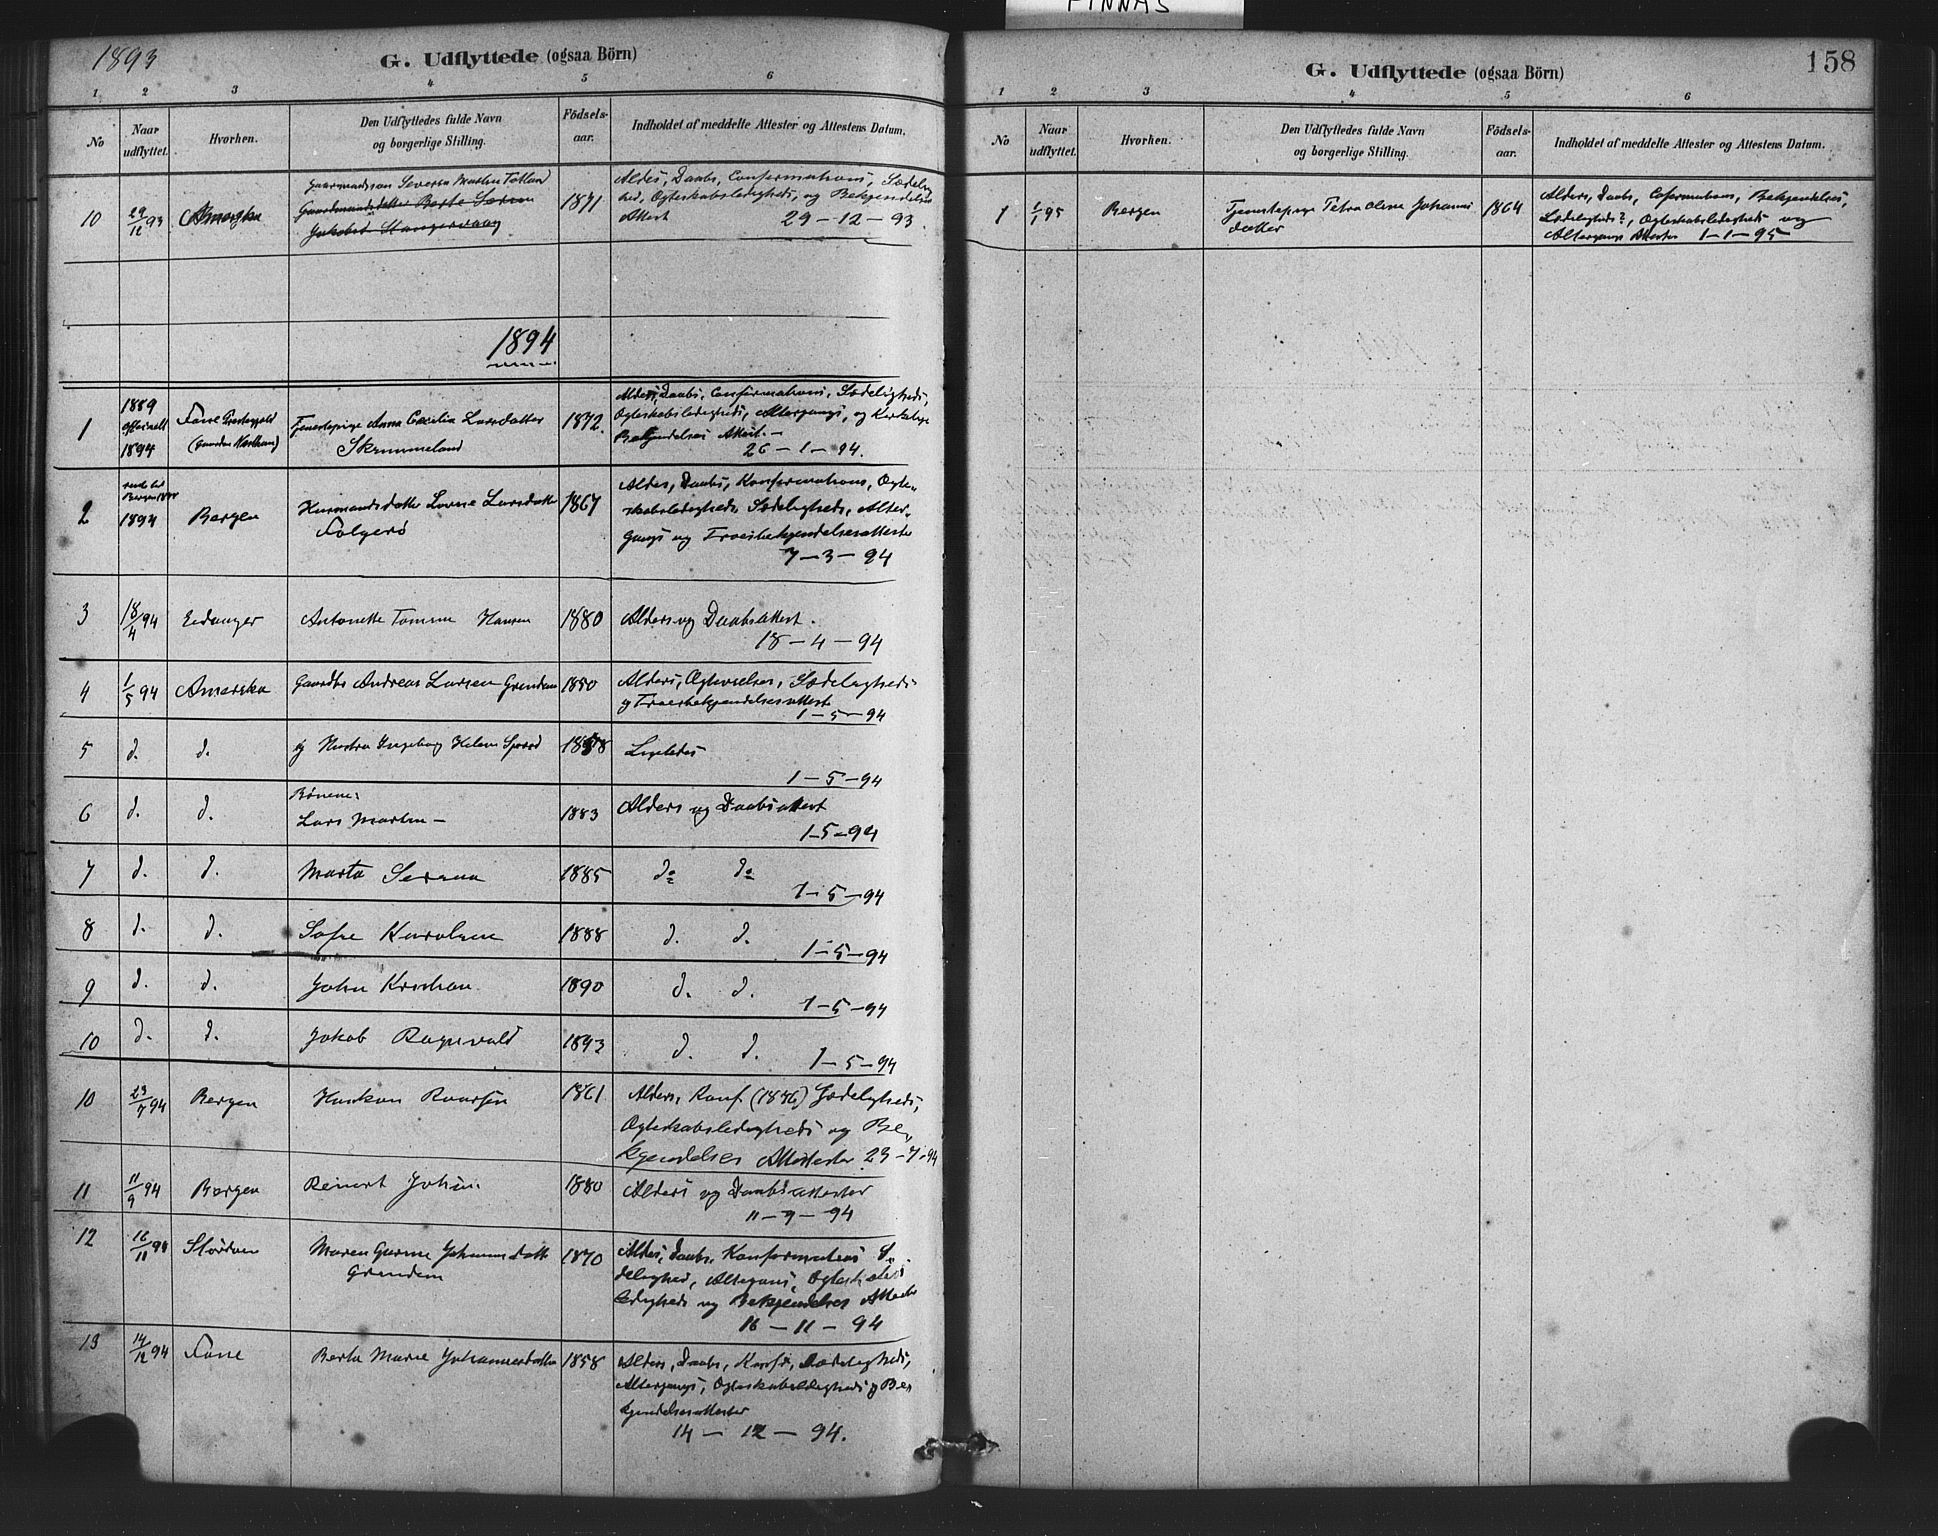 FINNÅS
1893
G. Udflyttede (ogsaa Börn)
1 2 3 4 5 6
No
Naar udflyttet.
Hvorhen.
Den Udflyttedes fulde Navn og borgerlige Stilling.
Födsels-aar.
Indholdet af meddelte Attester og Attestens Datum.
10 29/12 93 Amerika
Severin Martin
Gaardmandsdatter Berte
Jakobsd
1871
Alders, Daabs, Confermations, Sædelig
hed, Ogteskabsledigheds, og Bekjendelses
Attest 29-12-93
1894
1 1889 1894 Fane Præstegjeld
Tjenestepige Anna Cecilia Larsdatter
Skrummeland
1872.
Alders, Daabs, Confermations, Sædeligheds,
Ogteskabsledigheds, Altergangs, og
Bekjendelses Attest.-
26-1-94.
2 1894 Bergen
Husmandsdatter Larsdatter
Folgerø
1867
Alders, Daabs, Konfermations, Ogte-
skabsledigheds, Sædeligheds, Alter-
gangs og Troesbekjendelsesattester
7-3-94
3 18/4 94 Eidanger Antonette Hansen 1880 Alders og Daabsattest.
18-4-94
4 1/5 94 Amerika Andreas Larsen Grindem 1850 Alders, Sædeligheds
og Troesbekjendelsesattest
1-5-94
5 d. d. Hustru Ingeborg Helene Ligeledes
1-5-94
6 d. d. Børnene:
Lars Martin - 1883 Alders og Daabsattest
1-5-94
7 d. d. Marta Serina 1885 do do
1-5-94
8 d. d. Sofie Karoline 1888 d. d.
1-5-94
9 d. d. John Kristian 1890 d. d.
1-5-94
10 d. d. Jakob Ragnvald 1893 d. d.
1-5-94
10 23/7 94 Bergen Haakon Roarsen 1861 Alders, Konf. (1876) Sædeligheds,
Ogteskabsledigheds og Be-
kjendelses Attester 23-7-94
11 11/9 94 Bergen Reinert Johan 1880 Alders og Daabsattester
11-9-94
12 16/11 94 Stordøen Maren Gurine Johannesdatt
Grindem
1870
Alders, Daabs, Konfermations
Altergangs, Ogteskabs
ledigheds og Bekjendelses Attester
16-11-94
13 14/12 94 Fane Berta Marie Johannesdatter 1858 Alders, Daabs, Konf., Sædeligheds,
Altergangs, Ogteskabsledigheds og Be
kjendelsesattester
14-12-94.
158
G. Udflyttede (ogsaa Börn)
1 2 3 4 5 6
No
Naar udflyttet.
Hvorhen.
Den Udflyttedes fulde Navn og borgerlige Stilling.
Födsels-aar.
Indholdet af meddelte Attester og Attestens Datum.
1 1/1 95 Bergen Tjenestepige Petra Oline Johannes
datter
1864
Alders, Daabs, Cofermations, Bekjendelses,
Sædeligheds?, Ogteskabsledigheds og
Altergangs Attester 1-1-95